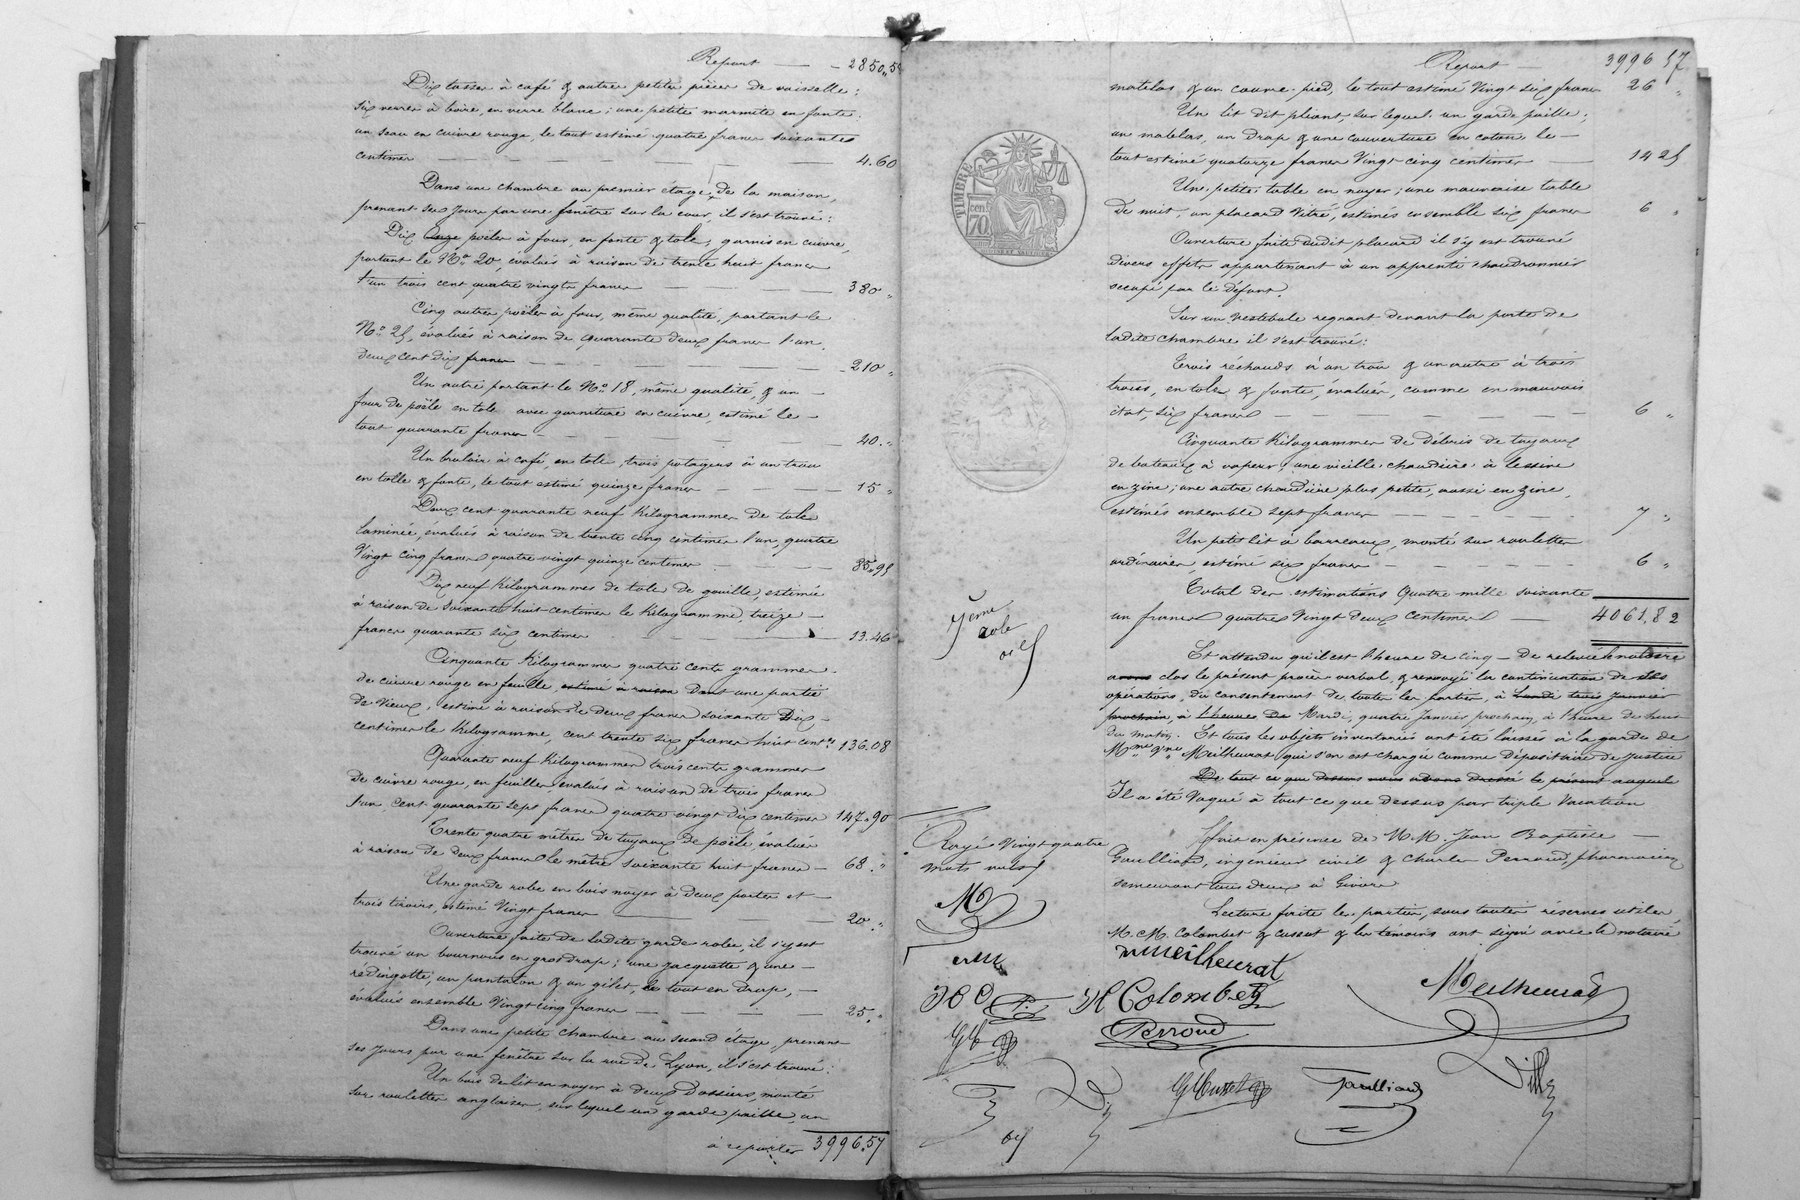 Report — 2850.5
Dix tasses à café & autres petites pièces de vaisselle ;
six verres à boire, en verre blanc ; une petite marmite en fonte ;
un seau en cuivre rouge, le tout estimé quatre francs soixante
centimes — 4.60
Dans une chambre au premier étage, de la maison,
prenant ses jours par une fenêtre sur la cour, il s'est trouvé :
Dix onze poëles à four, en fonte & tole, garnis en cuivre,
portant le No. 20, évalués à raison de trente huit francs
l'un trois cent quatre vingts francs — 380 "
Cinq autres poëles à four, même qualité, portant le
No. 25, évalués à raison de quarante deux francs l'un,
deux cent dix francs — 210 "
Un autre portant le No. 18, même qualité, & un
four de poële en tole avec garniture en cuivre, estimé le
tout quarante francs — 40. "
Un bruloir à café en tole, trois potagers à un trou
en tolle & fonte, le tout estimé quinze francs — 15 "
Deux cent quarante neuf Kilogrammes de tole
laminée, évalués à raison de trente cinq centimes l'un, quatre
Vingt cinq francs quatre vingt quinze centimes — 85.95
Dix neuf Kilogrammes de tole de gouille, estimée
à raison de soixante huit centimes le Kilogramme, treize
francs quarante six centimes — 13.46
Cinquante Kilogrammes quatre cents grammes
de cuivre rouge en feuille, estimé à raison Dont une partie
de Vieux, estimé à raison de deux francs soixante Dix
centimes le Kilogramme, cent trente six francs huit cent.s 136.08
Quarante neuf Kilogrammes trois cents grammes
de cuivre rouge, en feuilles, évalués à raison de trois francs
l'un, cent quarante sept francs quatre vingt dix centimes 147.90
Trente quatre mètres de tuyaux de poële, évalués
à raison de deux francs le mètre soixante huit francs — 68. "
Une garde robe en bois noyer à deux portes et
trois tiroirs, estimé Vingt francs — 20. "
Ouverture faite de ladite garde robe, il s'y est
trouvé un bournous en gros drap ; une jacquette & une
rédingotte, un pantalon & un gilet, le tout en drap,
évalués ensemble Vingt cinq francs — 25. "
Dans une petite chambre au second étage, prenant
ses jours par une fenêtre sur la rue de Lyon, il s'est trouvé :
Un bois de lit en noyer à deux Dossiers, monté
sur roulettes anglaises, sur lequel un garde paille, un
à reporter 3996.57
Report — 3996 57
matelas & un couvre-pied, le tout estimé Vingt six francs 26 "
Un lit dit pliant, sur lequel un garde paille ;
un matelas, un drap & une couverture en coton le
tout estimé quatorze francs Vingt cinq centimes — 14 25
Une petite table en noyer ; une mauvaise table
de nuit, un placard Vitré, estimés ensemble six francs 6 "
Ouverture faite dudit placard il s'y est trouvé
divers effets appartenant à un apprenti chaudronnier
occupé par le défunt.
Sur un vestibule regnant devant la porte de
ladite chambre il s'est trouvé :
Trois réchauds à un trou & un autre à trois
trous, en tole & fonte, évalués, comme en mauvais
état, six francs — 6 "
Cinquante Kilogrammes de débris de tuyaux
de bateaux à vapeur, une vieille chaudière à lessive
en zinc ; une autre chaudière plus petite, aussi en zinc,
estimés ensemble sept francs — 7 "
Un petit lit à barreaux, monté sur roulettes
ordinaires, estimé six francs — 6 "
Total des estimations Quatre mille soixante
un francs quatre Vingt deux Centimes — 4061,82
Et attendu qu'il est l'heure de cinq de relevée le notaire
avons clos le présent procès verbal, & renvoyé la continuation de ses
opérations, du consentement de toutes les parties, à Lundi trois Janvier
prochain, à l'heures de Mardi, quatre Janvier prochain, à l'heure de huit
du matin. Et tous les objets inventoriés ont été laissés à la garde de
Mme Vve Meilheurat qui s'en est chargée comme Dépositaire de Justice
De tout ce que dessus nous avons dressé le présent auquel
Il a été Vaqué à tout ce que dessus par triple Vacation
Fait en présence de M.M. Jean Baptiste
Gaulliard, ingénieur civil & Charles Perroud, pharmacien
demeurant tous deux à Givors
Lecture faite les parties, sous toutes réserves utiles,
M.M. Colombet & Cusset & les témoins ont signé avec le notaire
TIMBRE
cen.
70
7eme
role
Rayé Vingt quatre
mots nuls
M
vmeilheurat
Meilheurat
JHC
JH Colombet
Perroud
Gaulliard